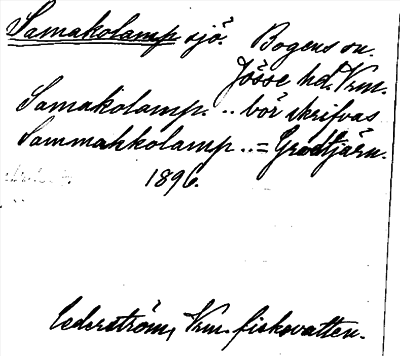 Samakolamp sjö. Bogens sn.
Jösse hd. Vrm.
Samakolamp. .. bör skrifvas
Sammahkolamp .. = Grodtjärn.
1896.
Cederström, Vrm. fiskevatten.